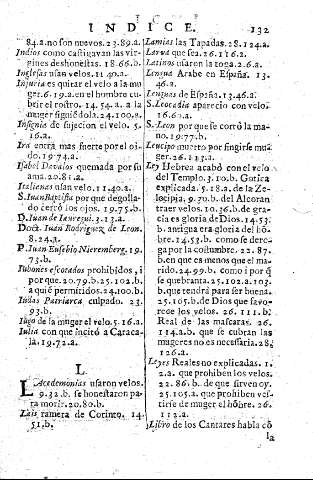 INDICE. 132
84.a. no son nuevos. 23. 89. a.
Indios como castigavan las virgines deshonestas. 18. 66. b.
Inglesas usan velos. 11. 40. a.
Injuria es quitar el velo a la muger. 6. 19. a. en el hombre cubrir el rostro. 14. 54. a. a la muger siguê dola. 24. 100. a.
Insignia de sujecion el velo. 5. 16. a.
Ira entra mas fuerte por el oido. 19. 74. a.
Isabel Davalos quemada por su ama. 20. 81. a.
Italianas usan velo. 11. 40. a.
S. Iuan Baptista por que degollado cerrò los ojos. 19. 75. b.
D. Iuan de Iauregui. 3. 13. a.
Doct. Iuan Rodriguez de Leon. 8. 24. a.
P. Iuan Eusebio Nieremberg. 19. 73. b.
Iubones escotados prohibidos, i por que. 20. 79. b. 25. 102. b. a quiê permitidos. 24. 100. b.
Iudas Patriarca culpado. 23. 93. b.
Iugo de la muger el velo. 5. 16. a.
Iulia con que incitò a Caracala. 19. 72. a.
L.
Lacademonias usaron velos. 9. 32. b. se honestaron para morir. 20. 80. b.
Lais ramera de Corinto. 14. 51. b.
Lamias las Tapadas. 28. 124. a.
Larva que sea. 26. 111. b.
Latinos usaron la toga. 2. 6. a.
Lengua Arabe en España. 13. 46. a.
Lenguas de España. 13. 46. a.
S. Leocadia aparecio con velo. 16. 60. a.
S. Leon por que se cortò la mano. 19. 77. b.
Leucipo muerto por fingirse muger. 26. 113. a.
Ley Hebrea acabò con el velo del Templo. 3. 10. b. Gotica explicada. 5. 18. a. de la Zelocipia. 9. 30. b. del Alcoran traer velos. 10. 36. b. de gracia es gloria de Dios. 14. 53. b. antigua era gloria del hôbre. 14. 53. b. como se derega por la costumbre. 22. 87. b. en que es menos que el marido. 24. 99. b. como i por q̃ se quebranta. 25. 102. a. 103. b. que tendrà para ser buena. 25. 105. b. de Dios que favorece los velos. 26. 111. b. Real de las mascaras. 26. 114. a. b. que se cubran las mugeres no es necessaria. 28. 126. a.
Leyes Reales no explicadas. 1. 2. a. que prohiben los velos. 22. 86. b. de que sirven oy. 25. 105. a. que prohiben vestirse de muger el hôbre. 26. 112. a.
Libro de los Cantares habla cô la